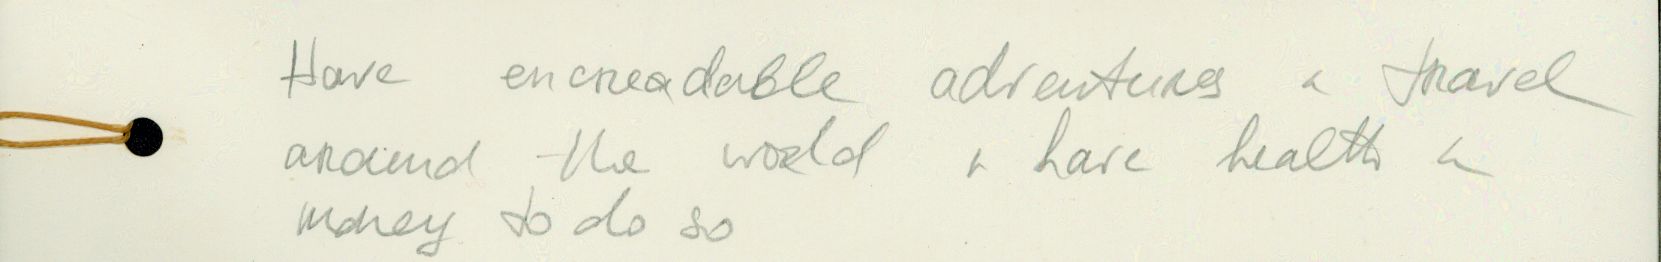 Have encreadable adventures & travel
around the world & have health &
money to do so